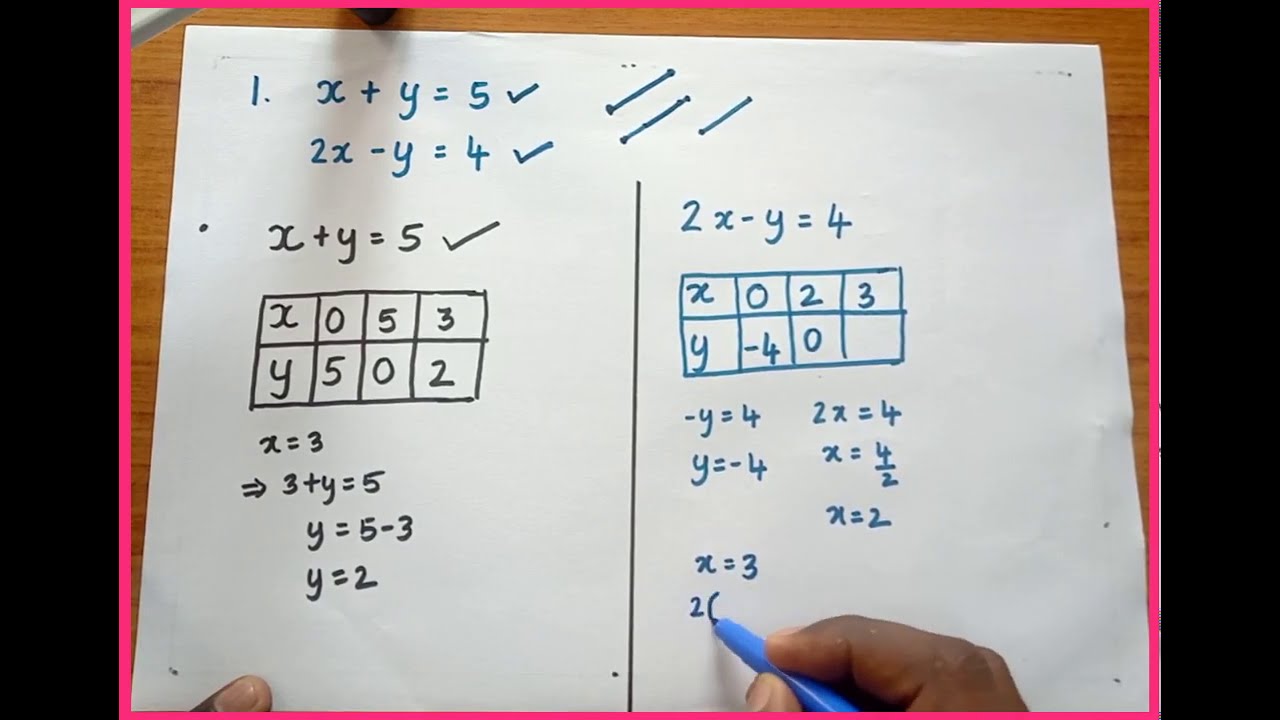 1. x + y = 5 ✓
2x - y = 4 ✓
x + y = 5 ✓
x 0 5 3
y 5 0 2
x = 3
⇒ 3 + y = 5
y = 5 - 3
y = 2
2x - y = 4
x 0 2 3
y -4 0
-y = 4
y = -4
2x = 4
x = 4/2
x = 2
x = 3
2(